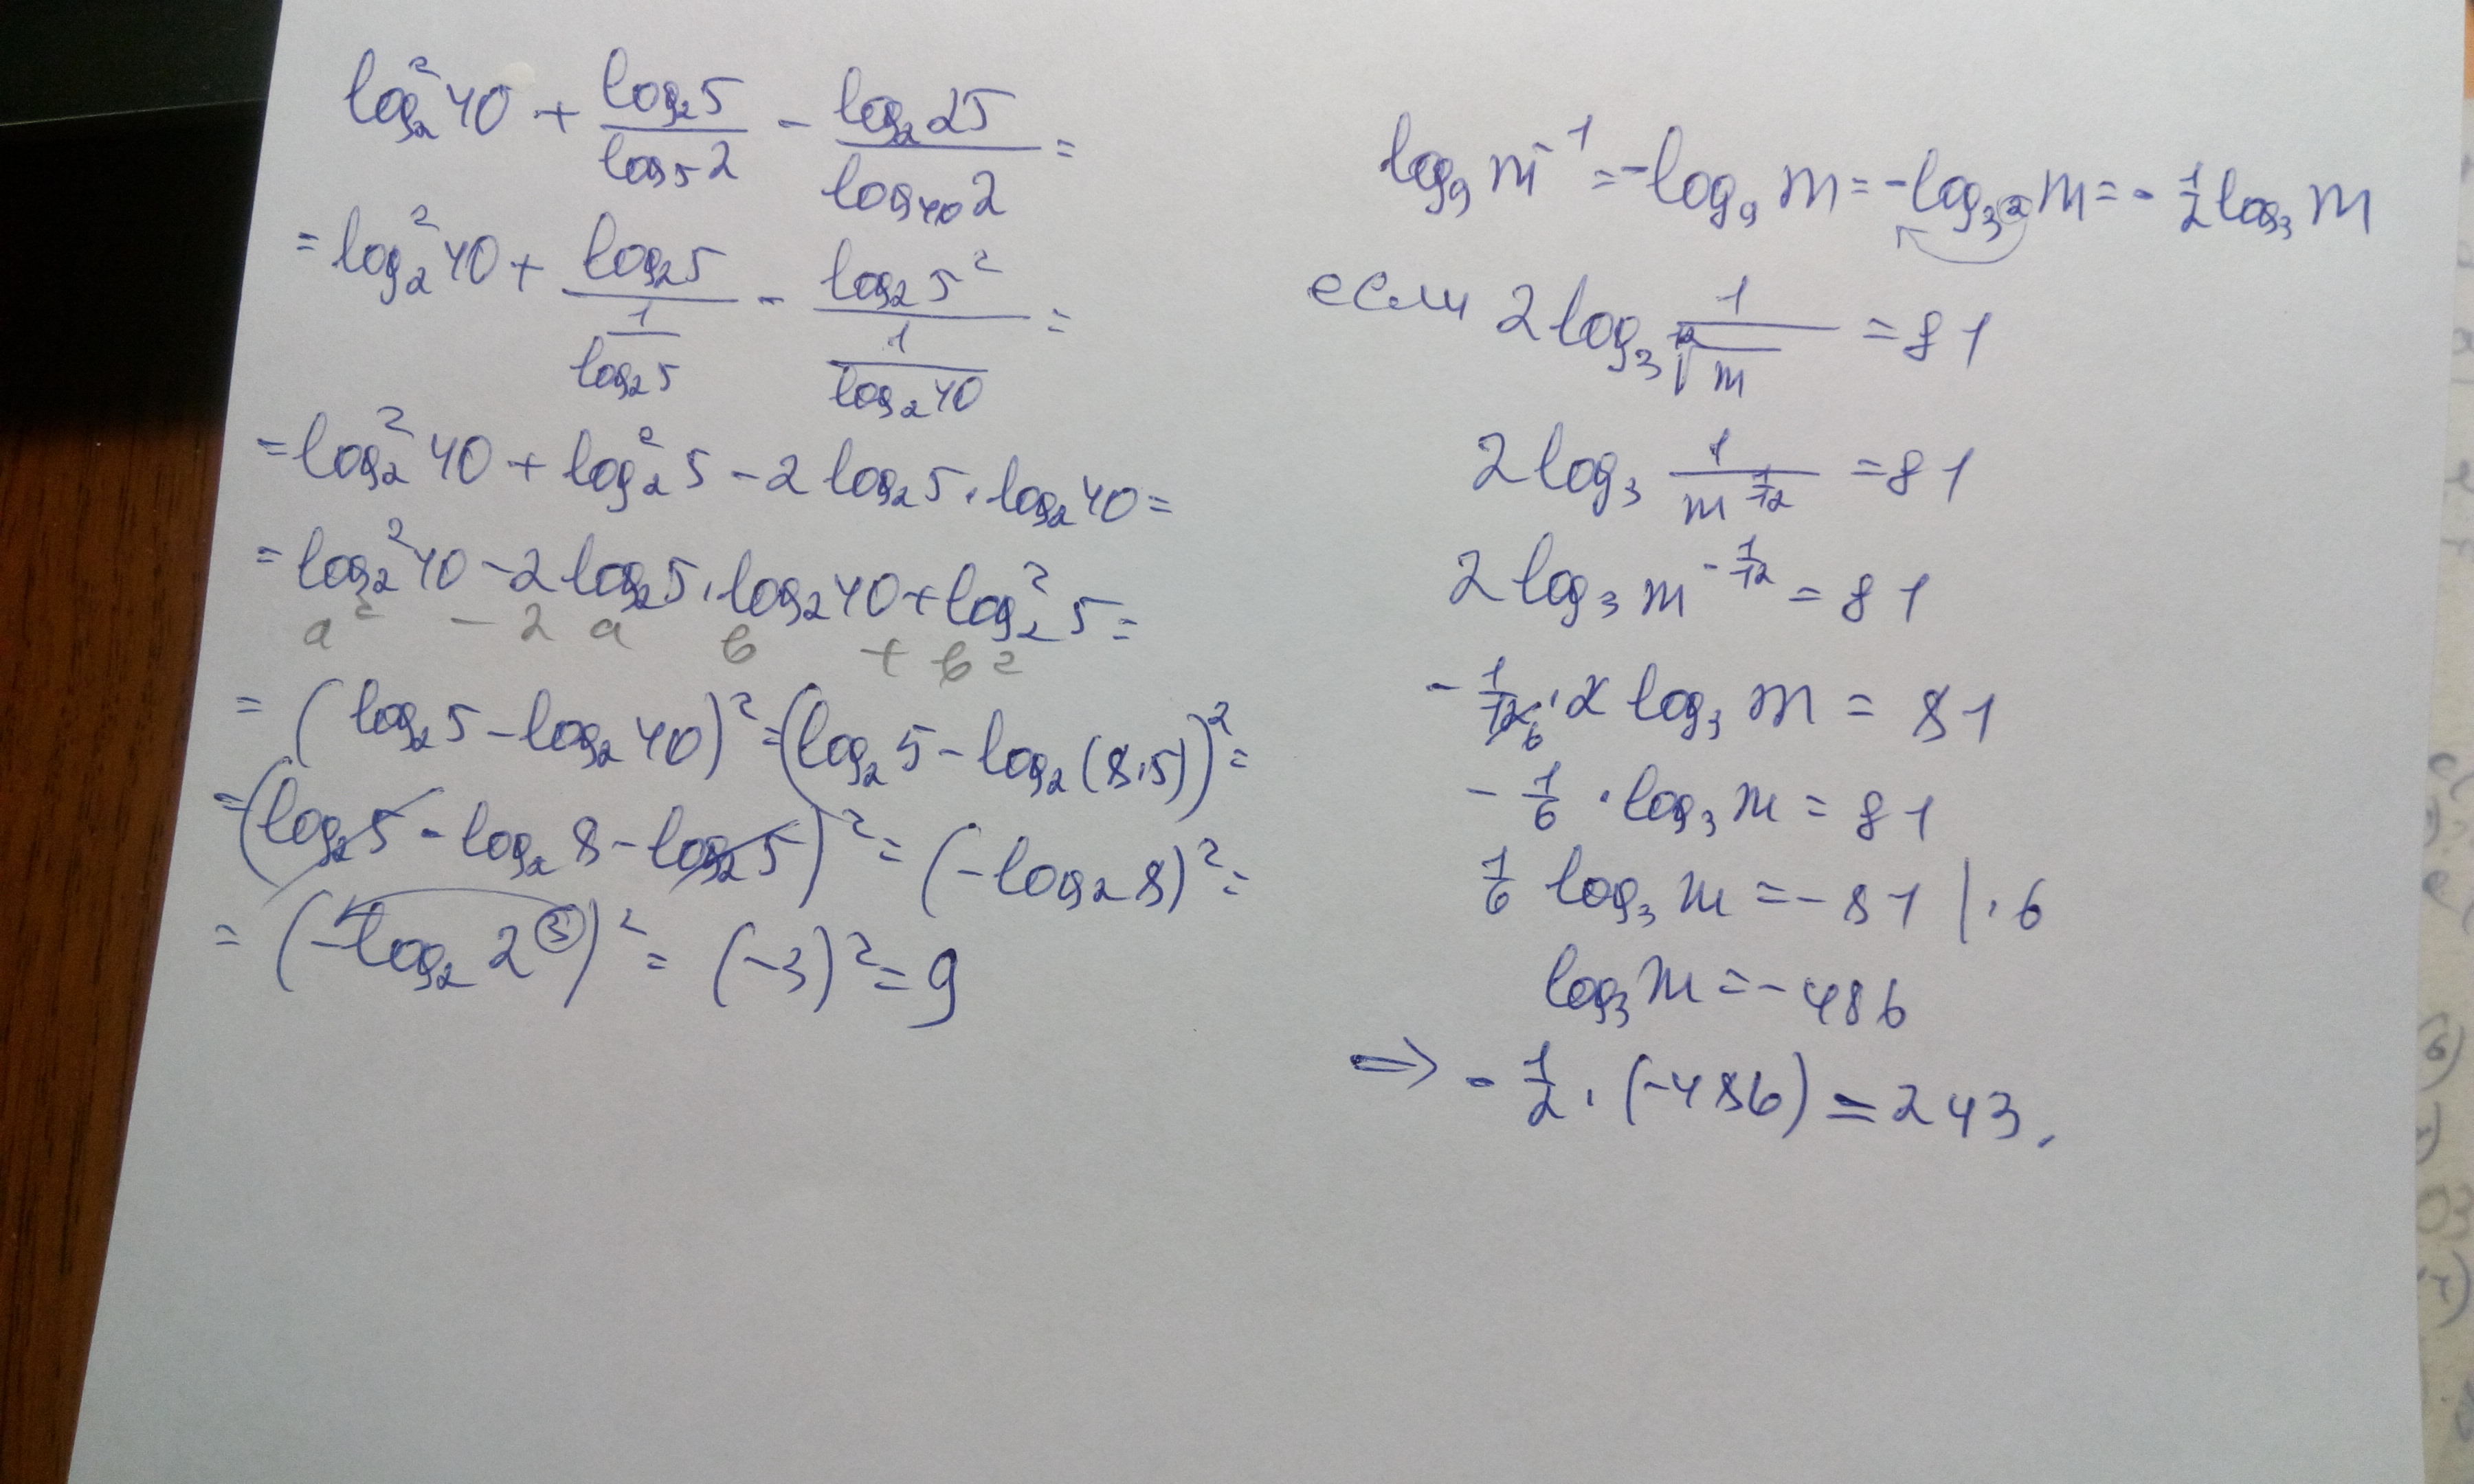 log₂²40 + log₂5/log₅2 - log₂25/log₄₀2 =
= log₂²40 + log₂5/(1/log₂5) - log₂5²/(1/log₂40) =
= log₂²40 + log₂²5 - 2log₂5 · log₂40 =
= log₂²40 - 2log₂5 · log₂40 + log₂²5 =
a² - 2 a в + в²
= (log₂5 - log₂40)² = (log₂5 - log₂(8·5))² =
= (log₂5 - log₂8 - log₂5)² = (-log₂8)² =
= (-log₂2³)² = (-3)² = 9
log₉m⁻¹ = -log₉m = -log₃²m = -1/2 log₃m
если 2log₃ 1/¹²√m = 81
2log₃ 1/m^(1/12) = 81
2log₃m^(-1/12) = 81
-1/12 6 · 2 log₃m = 81
-1/6 · log₃m = 81
1/6 log₃m = -81 | · 6
log₃m = -486
⇒ -1/2 · (-486) = 243.
6)
03